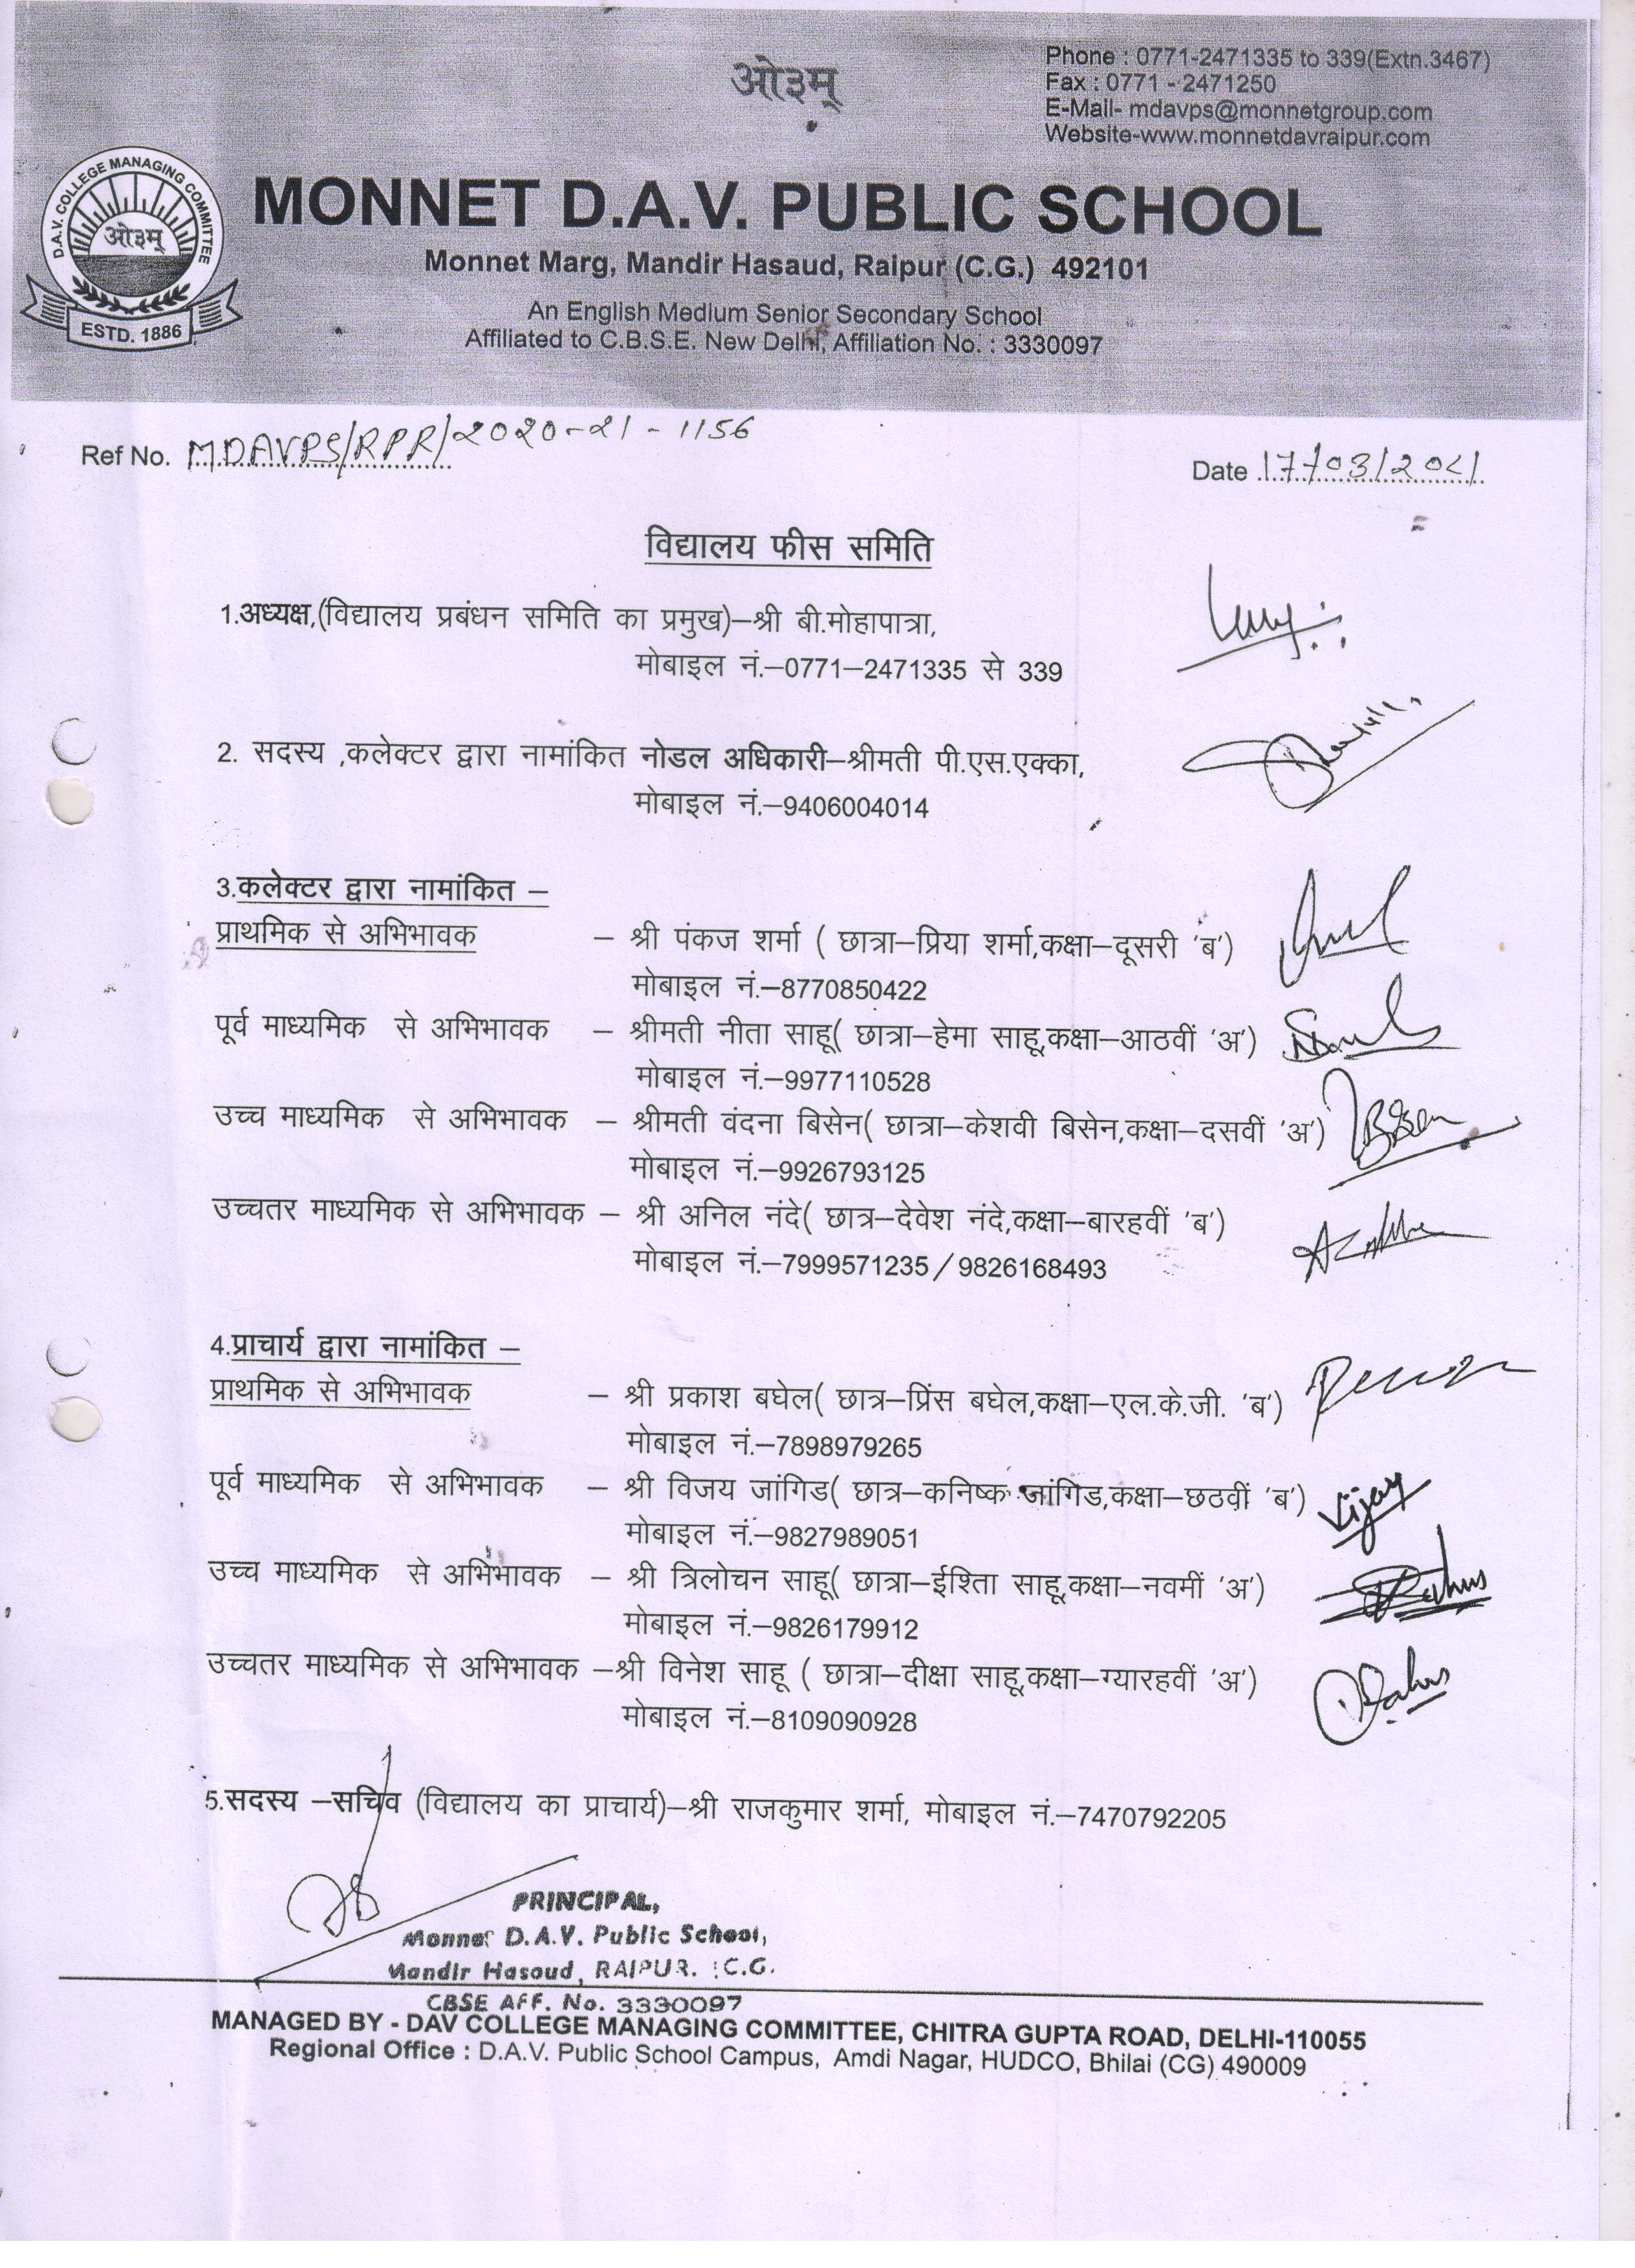 ओ३म्
Phone : 0771-2471335 to 339(Extn.3467)
Fax : 0771 - 2471250
E-Mail- mdavps@monnetgroup.com
Website-www.monnetdavraipur.com
D.A.V. COLLEGE MANAGING COMMITTEE
ओ३म्
ESTD. 1886
MONNET D.A.V. PUBLIC SCHOOL
Monnet Marg, Mandir Hasaud, Raipur (C.G.) 492101
An English Medium Senior Secondary School
Affiliated to C.B.S.E. New Delhi, Affiliation No. : 3330097
Ref No. MDAVPS/RPR/2020-21-1156
Date 17/03/2021
विद्यालय फीस समिति
1.अध्यक्ष,(विद्यालय प्रबंधन समिति का प्रमुख)–श्री बी.मोहापात्रा,
मोबाइल नं.–0771–2471335 से 339
2. सदस्य ,कलेक्टर द्वारा नामांकित नोडल अधिकारी–श्रीमती पी.एस.एक्का,
मोबाइल नं.–9406004014
3.कलेक्टर द्वारा नामांकित –
प्राथमिक से अभिभावक – श्री पंकज शर्मा ( छात्रा–प्रिया शर्मा,कक्षा–दूसरी 'ब')
मोबाइल नं.–8770850422
पूर्व माध्यमिक से अभिभावक – श्रीमती नीता साहू( छात्रा–हेमा साहू,कक्षा–आठवीं 'अ')
मोबाइल नं.–9977110528
उच्च माध्यमिक से अभिभावक – श्रीमती वंदना बिसेन( छात्रा–केशवी बिसेन,कक्षा–दसवीं 'अ')
मोबाइल नं.–9926793125
उच्चतर माध्यमिक से अभिभावक – श्री अनिल नंदे( छात्र–देवेश नंदे,कक्षा–बारहवीं 'ब')
मोबाइल नं.–7999571235/9826168493
4.प्राचार्य द्वारा नामांकित –
प्राथमिक से अभिभावक – श्री प्रकाश बघेल( छात्र–प्रिंस बघेल,कक्षा–एल.के.जी. 'ब')
मोबाइल नं.–7898979265
पूर्व माध्यमिक से अभिभावक – श्री विजय जांगिड( छात्र–कनिष्क जांगिड,कक्षा–छठवीं 'ब') Vijay
मोबाइल नं.–9827989051
उच्च माध्यमिक से अभिभावक – श्री त्रिलोचन साहू( छात्रा–ईश्ता साहू,कक्षा–नवमीं 'अ')
मोबाइल नं.–9826179912
उच्चतर माध्यमिक से अभिभावक –श्री विनेश साहू ( छात्रा–दीक्षा साहू,कक्षा–ग्यारहवीं 'अ')
मोबाइल नं.–8109090928
5.सदस्य –सचिव (विद्यालय का प्राचार्य)–श्री राजकुमार शर्मा, मोबाइल नं.–7470792205
PRINCIPAL,
Monnet D.A.V. Public School,
Mandir Hasoud, RAIPUR. (C.G.
CBSE AFF. No. 3330097
MANAGED BY - DAV COLLEGE MANAGING COMMITTEE, CHITRA GUPTA ROAD, DELHI-110055
Regional Office : D.A.V. Public School Campus, Amdi Nagar, HUDCO, Bhilai (CG) 490009